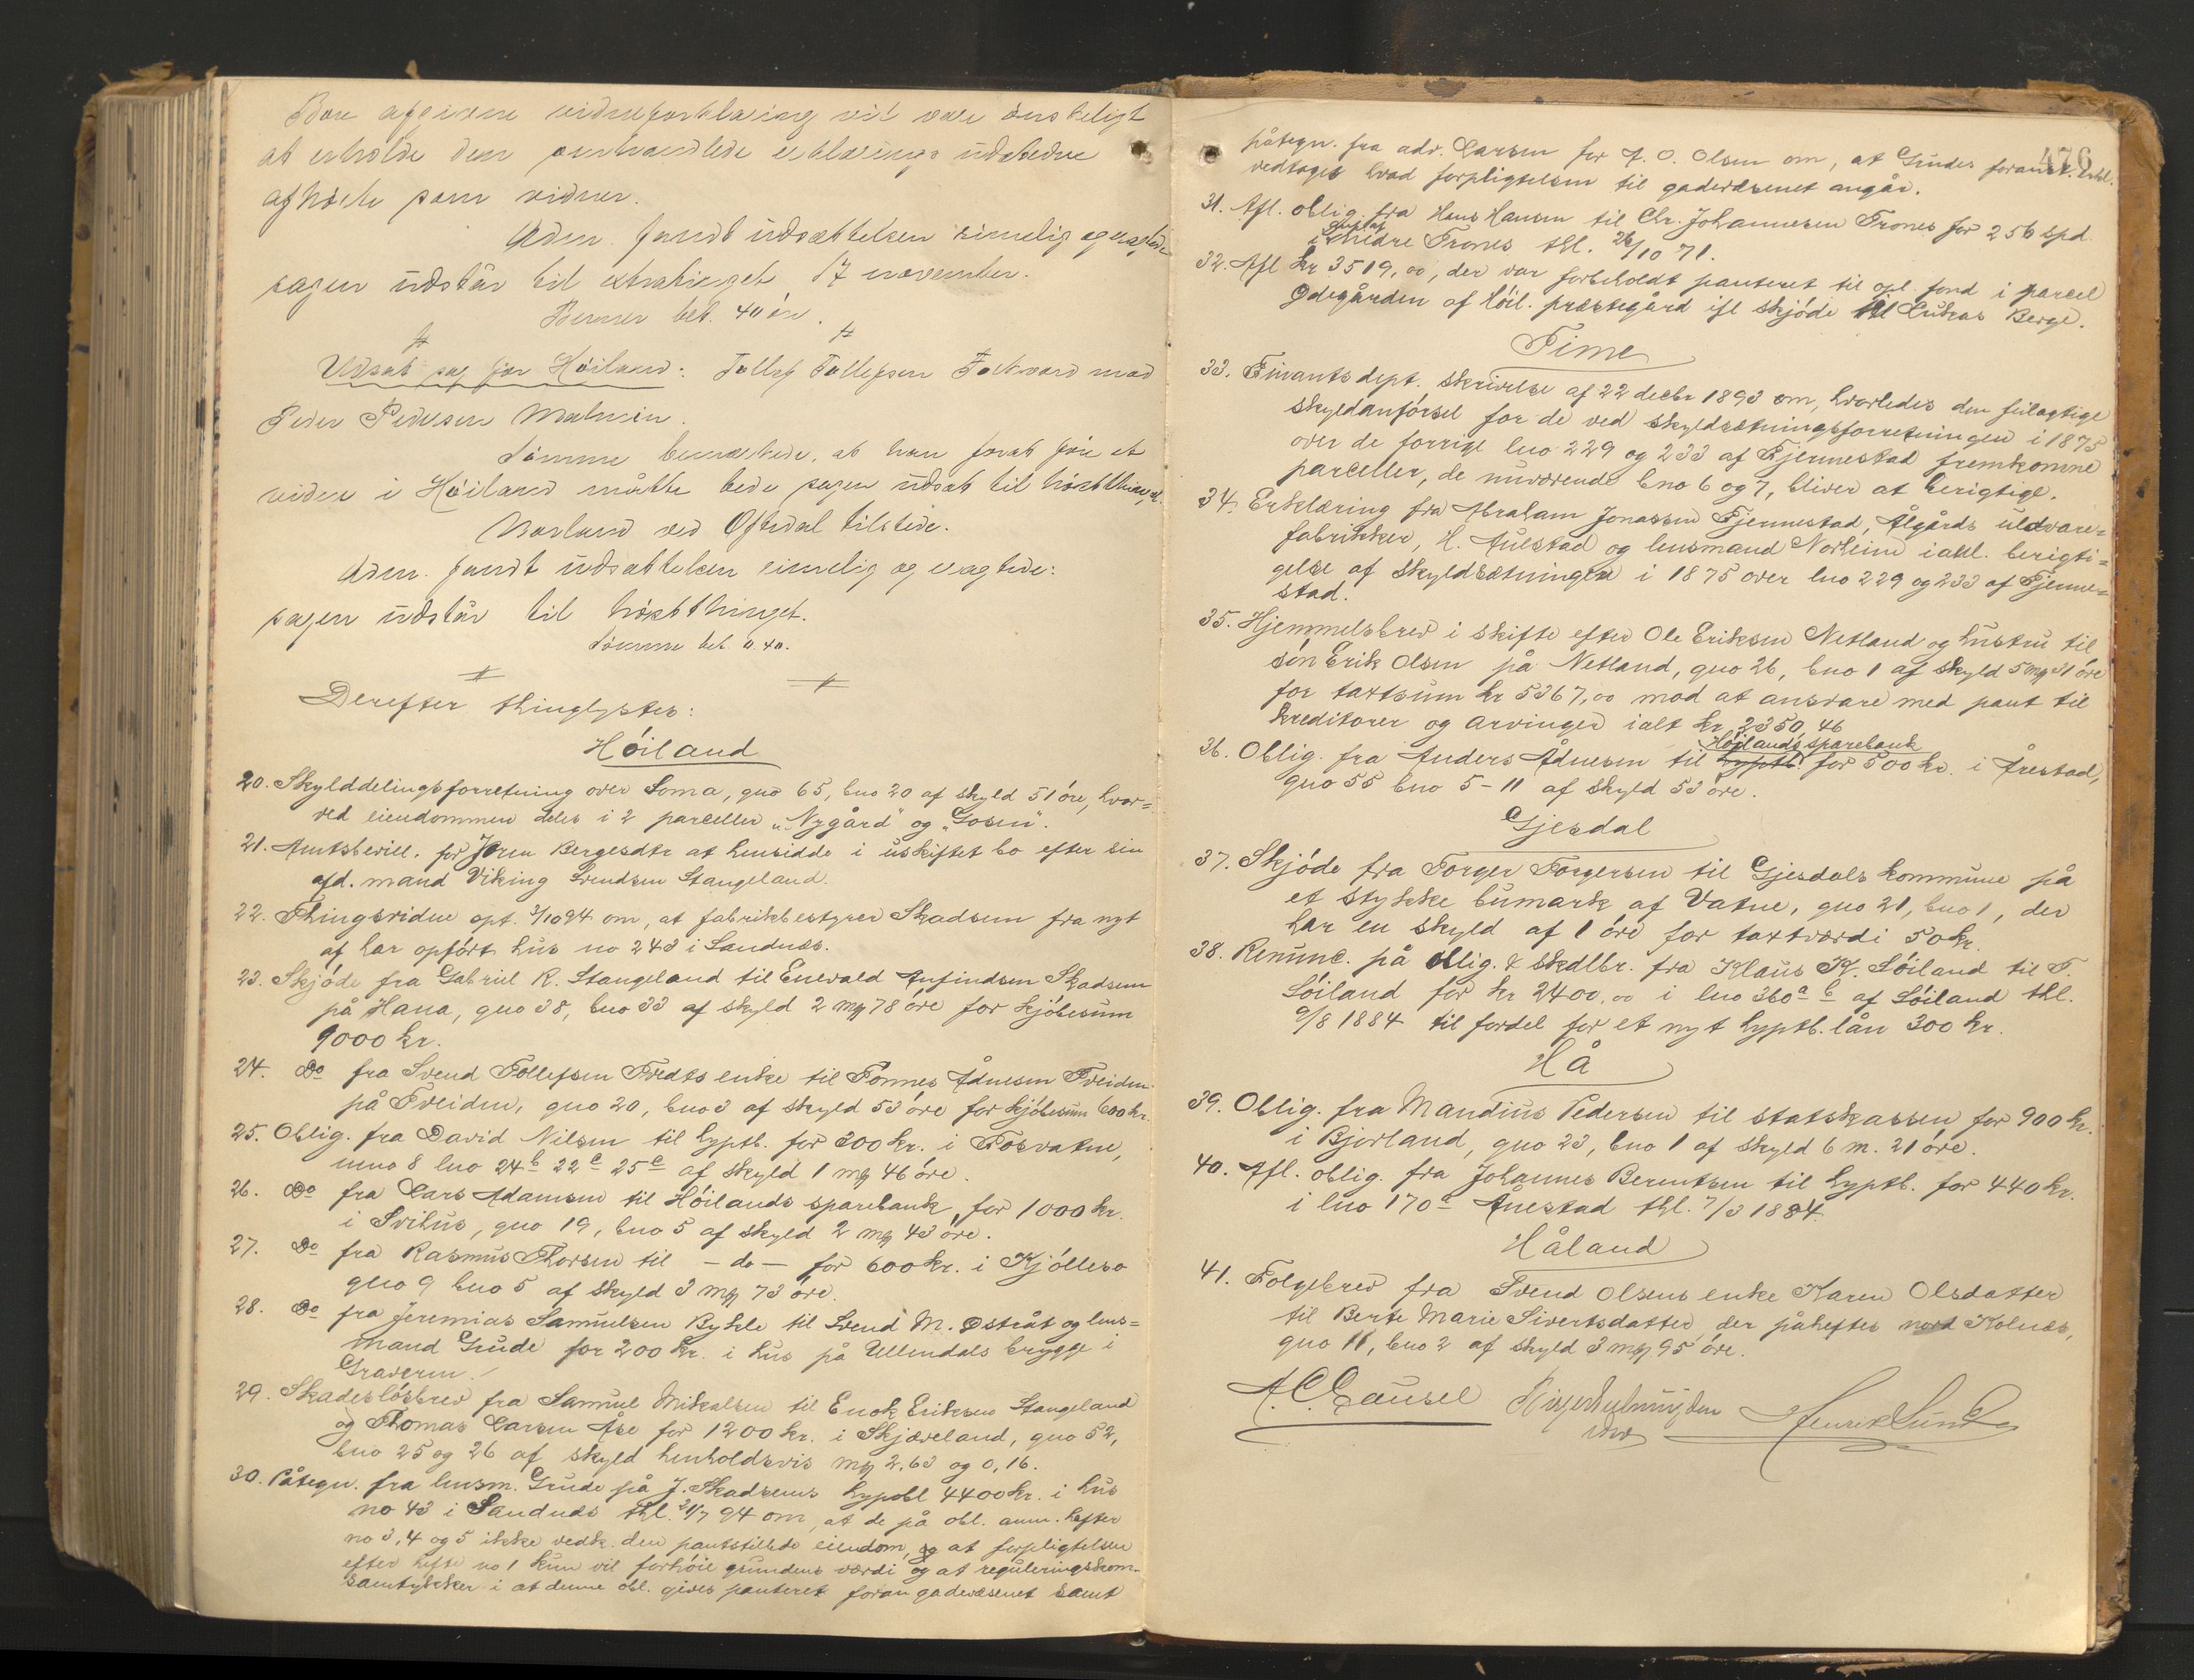 Bern afgivne vidneforklaring vil være ønskeligt
at erholde den omhandlede erklærings udstedere
afhørte som vidner.
Adm. fandt udsættelsen rimelig og vægtede
sagen udstår til extrathinget 17 november.
Berner bet. 40 øre.
Udsat sag for Høiland: Tollef Tollefsen mod
Peder Pedersen Malmin.
Sømme bemærkede, at han forat føre et
vidne i Høiland måtte bede sagen udsat til høstthinget.
Norland ved Oftedal tilstede.
Adm. fandt udsættelsen rimelig og vægtede:
sagen udstår til høstthinget.
Sømme bet. 0.40.
Derefter thinglystes:
Høiland
20. Skylddelingsforretning over Soma, gno 65, bno 20 af skyld 51 øre, hvor=
ved eiendommen deles i 2 parceller „Nygård" og „Gosen".
21. Amtsbevill. for Jøren Bergesdtr at hensidde i uskiftet bo efter sin
afd. mand Viking Svendsen Stangeland.
22. Thingsvidne opt. 3/10 94 om, at fabrikbestyrer Skadsem fra nyt
af har opført hus no 243 i Sandnæs.
23. Skjøde fra Gabriel R. Stangeland til Enevald Anfindsen Skadsem
på Hana, gno 38, bno 33 af skyld 2 mk 78 øre for kjøbesum
9000 kr.
24. Do fra Svend Tollefsen Tvedts enke til Tønnes Ådnesen Tveiden
på Tveiden, gno 20, bno 3 af skyld 53 øre for kjøbesum 600 kr.
25. Oblig. fra David Nilsen til hyptb. for 300 kr. i Fosvatne,
mno 8 lno 24b 22c 25c af skyld 1 mk 46 øre.
26. Do fra Lars Adamsen til Høilands sparebank, for 1000 kr.
i Svihus, gno 19, bno 5 af skyld 2 mk 43 øre.
27. Do fra Rasmus Thorsen til – do – for 600 kr. i Kjøllesø
gno 9 bno 5 af skyld 3 mk 73 øre.
28. Do fra Jeremias Samuelsen Bykle til Svend M. Østråt og lens=
mand Grude for 200 kr. i hus på Ullendals brygge i
Graveren.
29. Skadesløsbrev fra Samuel Mikalsen til Enok Eriksen Stangeland
og Thomas Larsen Åse for 1200 kr. i Skjæveland, gno 52,
bno 25 og 26 af skyld henholdsvis mk 2,63 og 0,16.
30. Påtegn. fra lensm. Grude på J. Skadsems hypobl 4400 kr. i hus
no 43 i Sandnæs thl. 21/7 94 om, at de på obl. anm. hefter
no 3, 4 og 5 ikke vedk. den pantstillede eiendom, og at forpligtelsen
efter hefte no 1 kun vil forhøie grundens værdi og at reguleringskom.
samtykker i at denne obl. gives panteret foran gadevæsenet samt
476
påtegn. fra adv. Larsen for A. O. Olsen om, at Grudes foranst. erkl.
vedtages hvad forpligtelsen til gadevæsenet angår.
31. Afl. oblig. fra Hans Hansen til Chr. Johannesen Trones for 256 spd.
i Søndre Trones thl. 26/10 71.
32. Afl kr 3519,00, der var forbeholdt panteret til opl. fond i parcel
Ødegården af Høil. præstegård ifl skjøde til Lukas Berge.
Time
33. Finantsdept. skrivelse af 22 decbr 1893 om, hvorledes den feilagtige
skyldanførsel for de ved skyldsætningsforretningen i 1875
over de forrige lno 229 og 233 af Fjermestad fremkomne
parceller, de nuværende bno 6 og 7, bliver at berigtige.
34. Erklæring fra Abraham Jonassen Fjermestad, Ålgårds uldvare=
fabrikker, H. Auestad og lensmand Norheim i anl. berigti=
gelse af skyldsætningen i 1875 over lno 229 og 233 af Fjerme=
stad.
35. Hjemmelsbrev i skifte efter Ole Eriksen Netland og hustru til
søn Erik Olsen på Netland, gno 26, bno 1 af skyld 5 mk 31 øre
for taxtsum kr 5367,00 mod at ansvare med pant til
kreditorer og arvinger ialt kr 2350,46
36. Oblig. fra Anders Ådnesen til hyptb. Høilands sparebank for 500 kr. i Årestad,
gno 55 bno 5–11 af skyld 53 øre.
Gjesdal
37. Skjøde fra Torger Torgersen til Gjesdals kommune på
et stykke bumark af Vatne, gno 21, bno 1, der
har en skyld af 1 øre for taxtværdi 50 kr.
38. Renunc. på oblig. & skadlbr. fra Klaus K. Søiland til T.
Søiland for kr 2400,00 i lno 360a b af Søiland thl.
9/8 1884 til fordel for et nyt hyptb. lån 300 kr.
Hå
39. Oblig. fra Mandius Pedersen til statskassen for 900 kr.
i Bjorland, gno 23, bno 1 af skyld 6 m. 21 øre.
40. Afl. oblig. fra Johannes Berentsen til hyptb. for 440 kr.
i lno 170a Auestad thl. 7/3 1884.
Håland
41. Følgebrev fra Svend Olsens enke Karen Olsdatter
til Berte Marie Sivertsdatter, der påheftes nord Kolnæs,
gno 11, bno 2 af skyld 3 mk 95 øre.
A. C. Gausel Henrik Lund